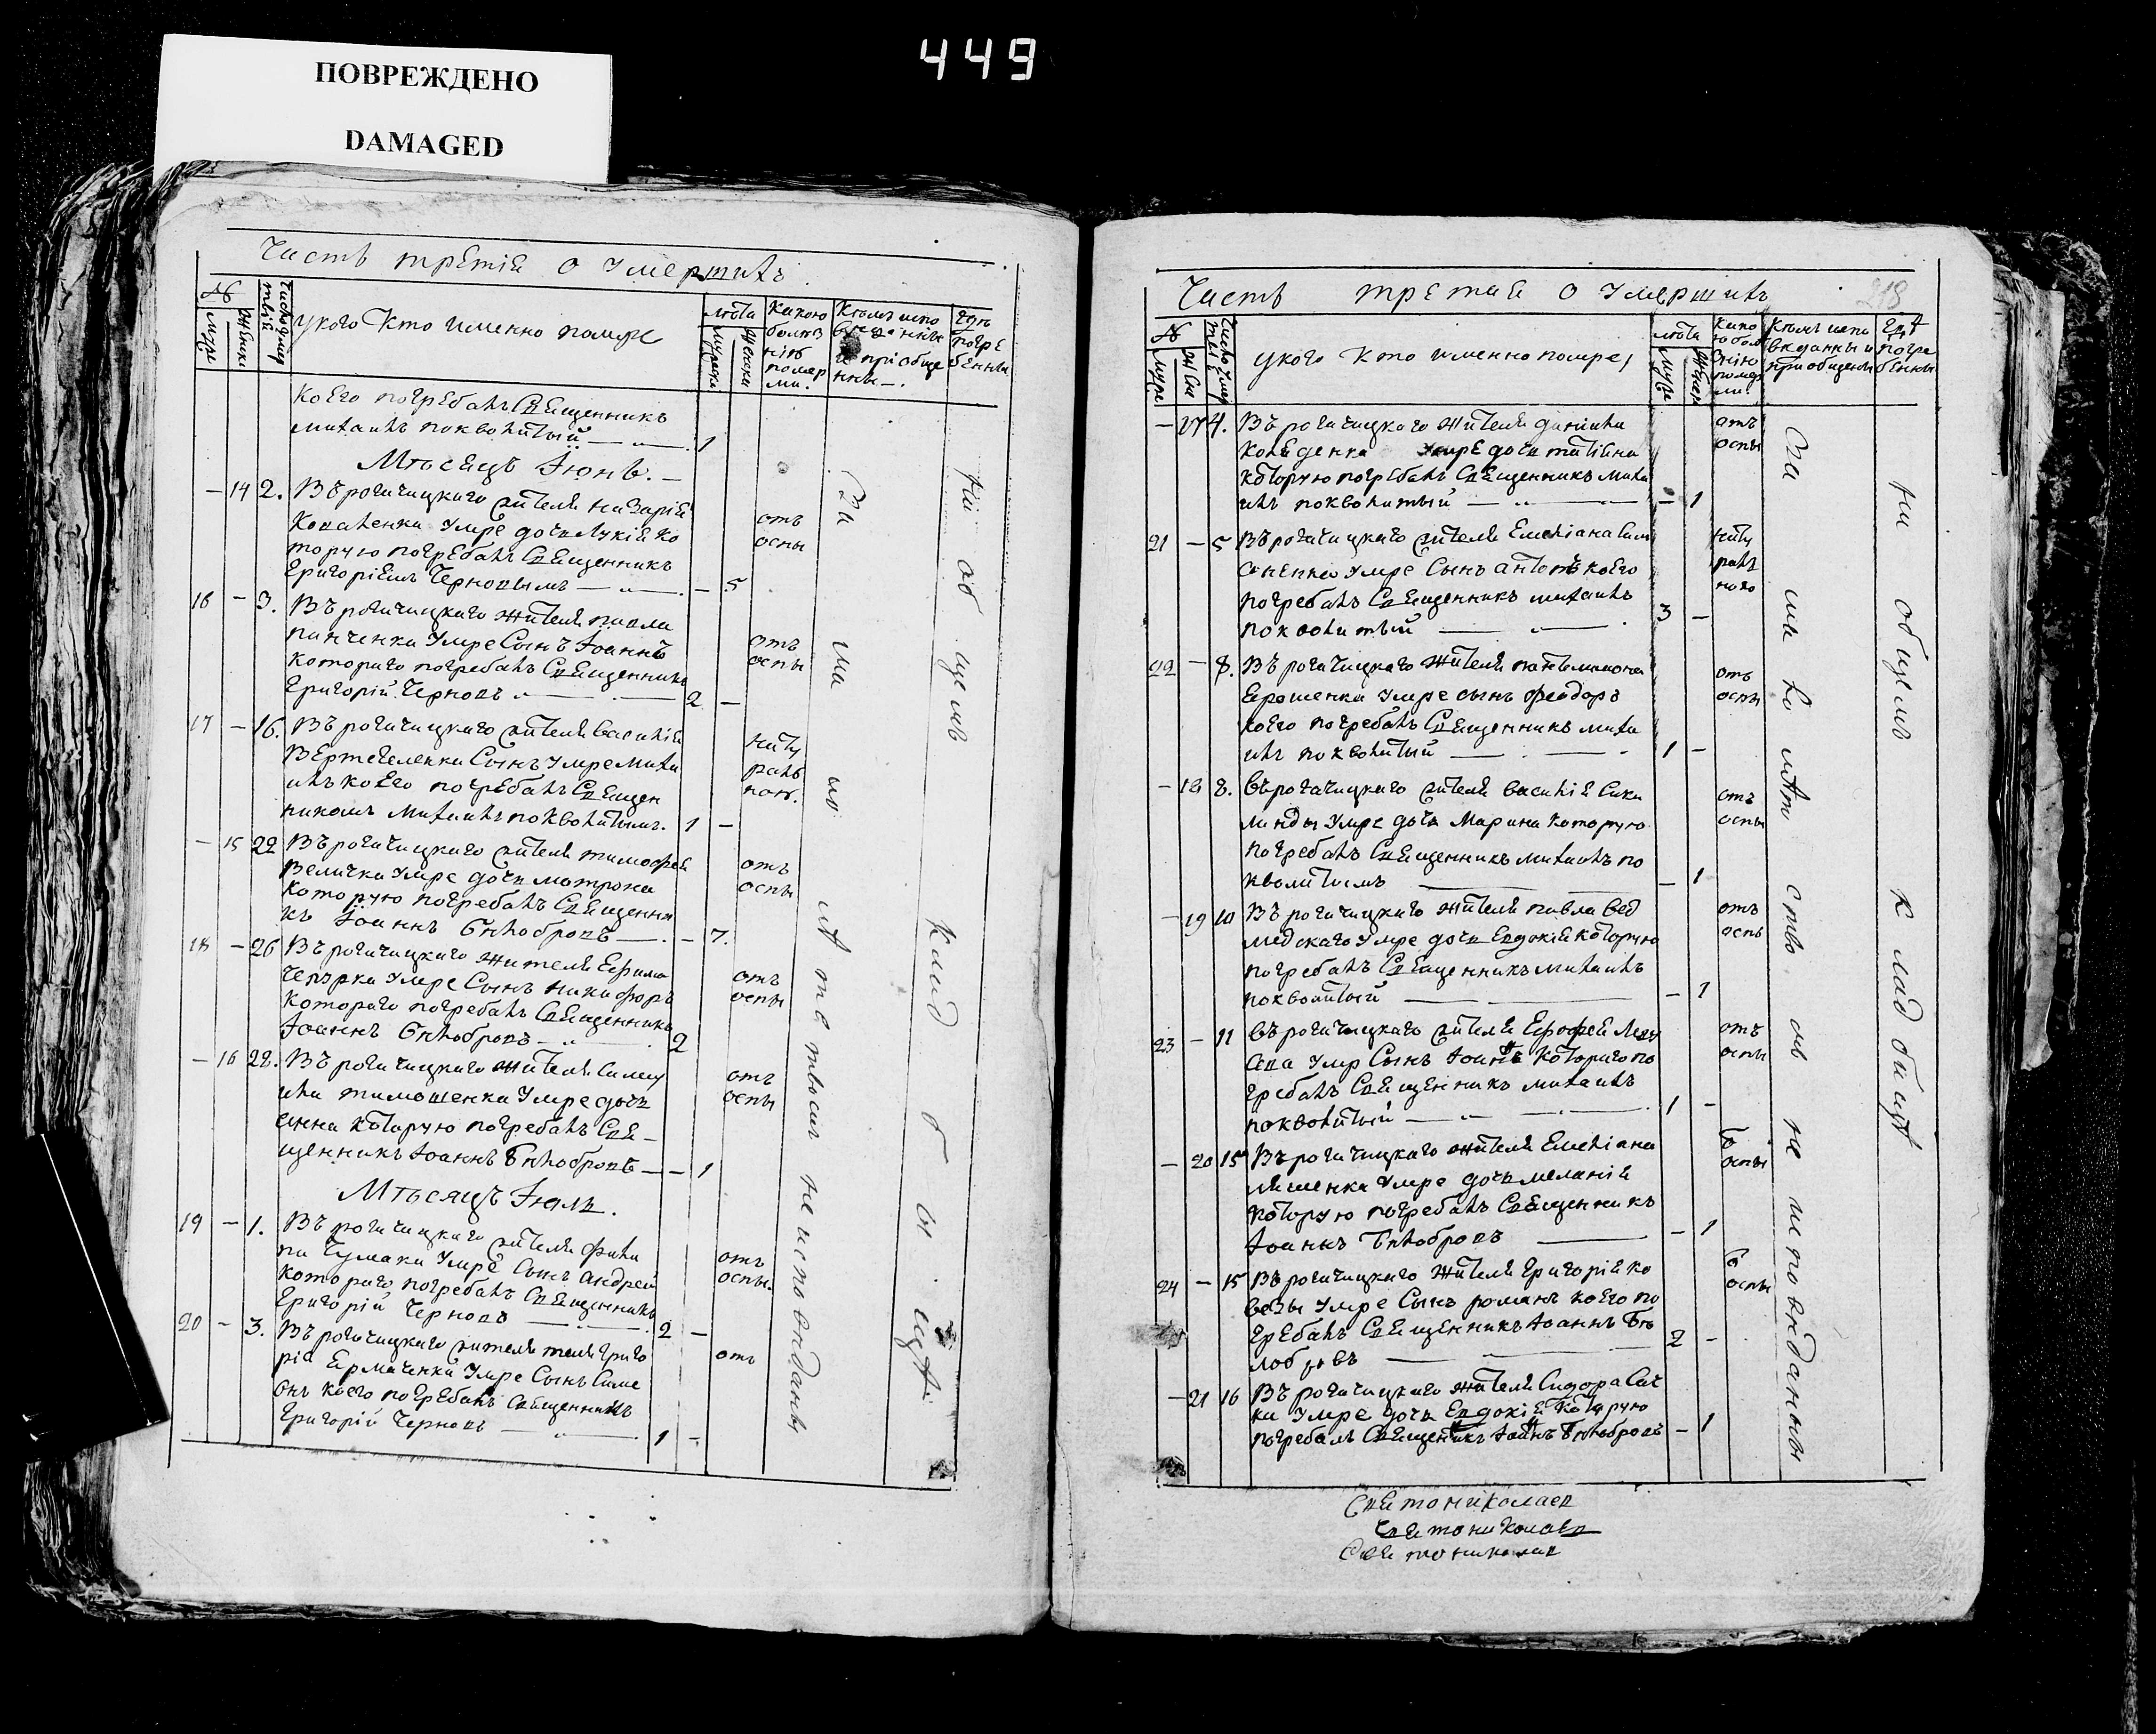 449
ПОВРЕЖДЕНО
DAMAGED
Часть третія о умершихъ
№
муже
Женски
Число умертвій
укого кто именно помре
лѣта
мужска
женски
Какою
болѣз
нію
помер
ли.
Кѣмъ испо
веданны
и пріобще
нны —.
Гдѣ
погре
бенны
коего погребалъ Священникъ
Михаилъ поквонитый — 1
Мѣсяцъ Іюнь. —
— 14 2. Въ рогачицкаго жителя назарія
Коваленка Умре дочь Лукія ко
торую погребалъ Священникъ
Григоріемъ Черновымъ — — 5
отъ
оспы
16 — 3. Въ рогачицкаго жителя павла
панченка Умре Сынъ Іоаннъ
котораго погребалъ Священникъ
Григорій Черновъ — 2 —
отъ
оспы
17 — 16. Въ рогачицкаго жителя василія
Сынъ Умре Миха
илъ коего погребалъ Священ
никомъ Михаилъ поквонитымъ. 1 —
нату
раль
ной.
— 15 22 Въ рогачицкаго жителя тимофея
Величка Умре дочь матрона
которую погребалъ Священни
къ Іоаннъ Бѣлобровъ — — 7.
отъ
оспы
18 — 26 Въ рогачицкаго жителя Ефима
Умре Сынъ никифоръ
котораго погребалъ Священникъ
Іоаннъ Бѣлобровъ — 2
отъ
оспы
— 16 28. Въ рогачицкаго жителя Саму
ила тимошенка Умре дочь
анна которую погребалъ Свя—
щенникъ Іоаннъ Бѣлобровъ — — 1
отъ
оспы
Мѣсяцъ Іюль.
19 — 1. Въ рогачицкаго жителя фили
па Чумака Умре Сынъ андрей
котораго погребалъ Священникъ
Григорій Черновъ — 2 —
отъ
оспы.
20 — 3. Въ рогачицкаго жителя Григо
рія Ермаченка Умре Сынъ Симе
онъ коего погребалъ Священникъ
Григорій Черновъ — 1 —
отъ
За мало лѣтствомъ не исповѣданы
На общемъ кладбищѣ.
Часть третія о умершихъ
218
№
муже
Число умер
укого кто именно помере,
лѣта
Како
ю бол
знію
помер
ли.
Кѣмъ испо
веданны и
пріобщены
Гдѣ
погре
бенны
— 17 4. Въ рогачицкаго жителя даніила
умре дочь татіана
которую погребалъ Священникъ миха
илъ поквонитый — — 1
отъ
оспы
21 — 5 Въ рогачицкаго жителя Емеліана Сам
соненка Умре Сынъ антонъ коего
погребалъ Священникъ михаилъ
поквонитый — 3 —
нату
раль
ного
22 — 8. Въ рогачицкаго жителя пантилимона
Ерошенка Умре сынъ феодоръ
коего погребалъ Священникъ миха
илъ поквонитый — 1 —
отъ
оспы
— 18 8. Въ рогачицкаго жителя василія Сала
манды Умре дочь Марина которую
погребалъ Священникъ михаилъ по
квонитымъ — — 1
отъ
оспы
— 19 10 Въ рогачицкаго жителя павла вед
медскаго Умре дочь Евдокія которую
погребалъ Священникъ михаилъ
поквонитый — — 1
отъ
оспы
23 — 11 Въ рогачицкаго жителя Ерофея
Умре Сынъ Іоаннъ котораго по
гребалъ Священникъ михаилъ
поквонитый — 1 —
отъ
оспы
— 20 15 Въ рогачицкаго жителя Емеліана
Умре дочь меланія
которую погребалъ Священникъ
Іоаннъ Бѣлобровъ — — 1
оспы
24 — 15 Въ рогачицкаго жителя Григорія ко
Умре Сынъ романъ коего по
гребалъ Священникъ Іоаннъ Бѣ
лобровъ — 2 —
оспы
— 21 16 Въ рогачицкаго жителя Сидора Сач
ка Умре дочь Евдокія которую
погребалъ Священникъ Іоаннъ Бѣлобровъ — 1
За мало лѣтствомъ не исповѣданны
На общемъ кладбищѣ
Святониколаев
Святониколаев
Святониколаев